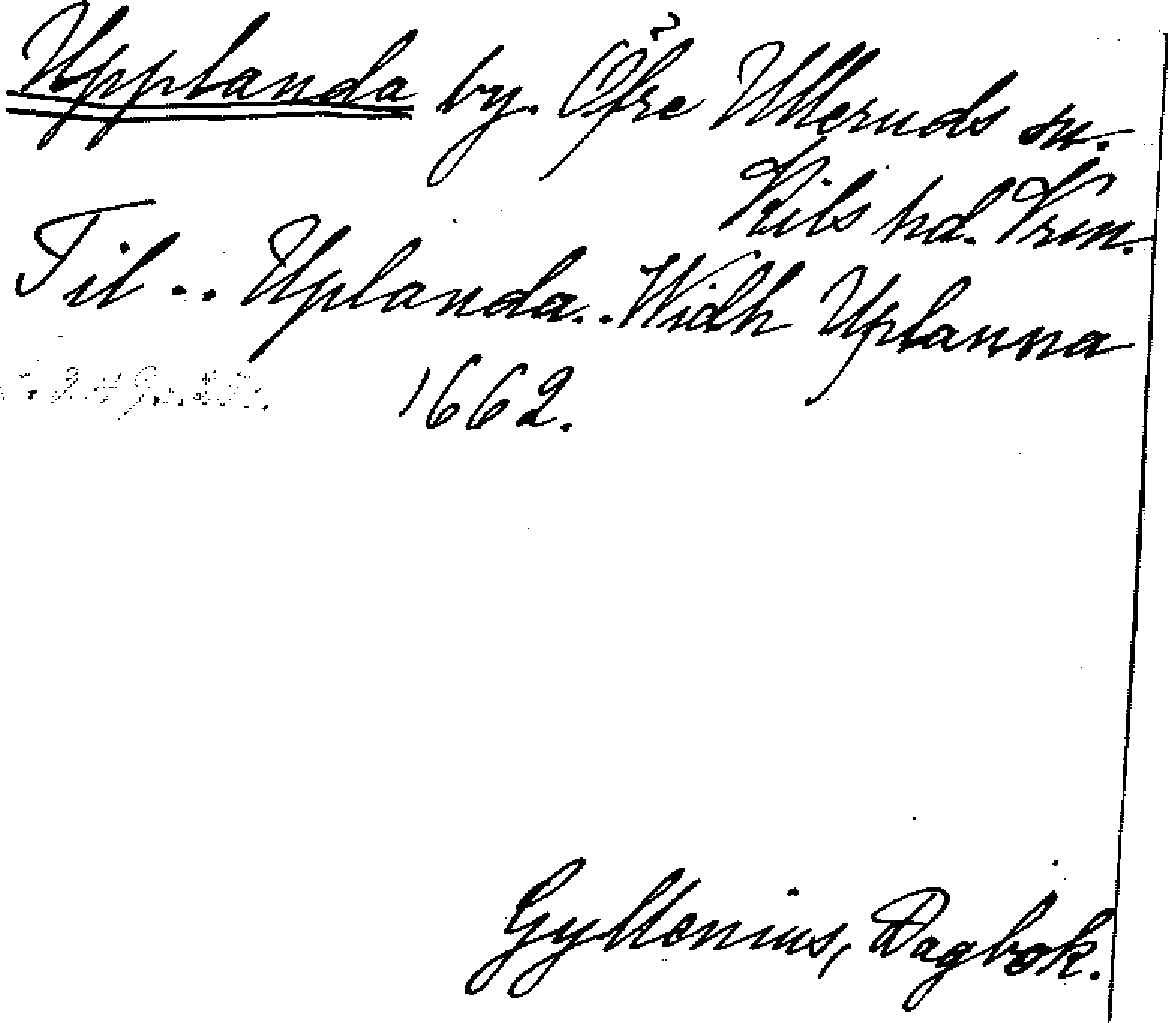 Upplanda by. Öfre Ulleruds sn.
Kils hd. Vrm.
Til .. Uplanda.. Widh Uplanna
1662.
Gyllenius, Dagbok.